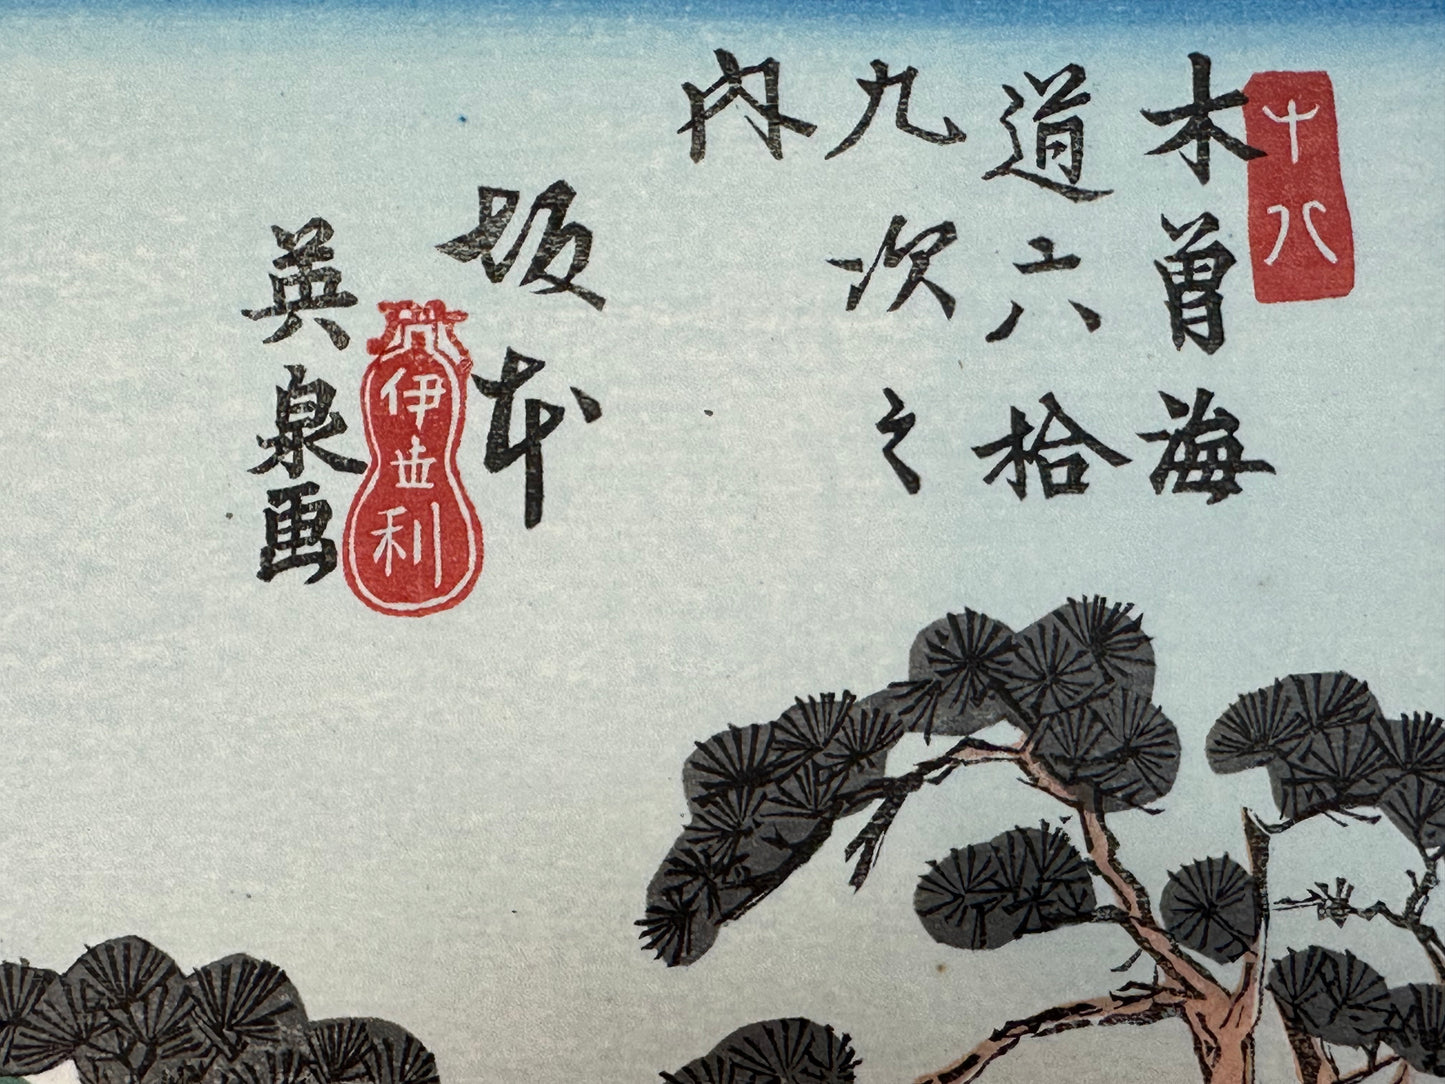 十八
木曾海
道六拾
九次之
内
坂本
伊世利
英泉画